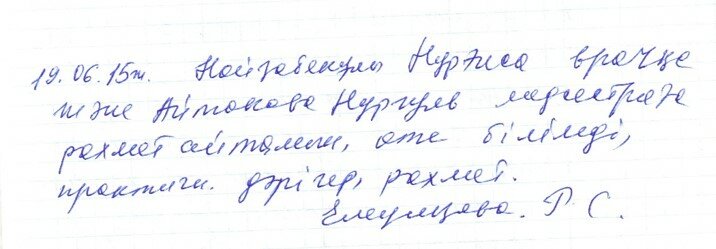 19.06.15ж. Найзабекулы Нуржиса врачқа
және Аймакова Нургуль медсестраға
рахмет айтамын, өте білімді,
практичн. дәрігер, рахмет.
Елеумцова. Р. С.